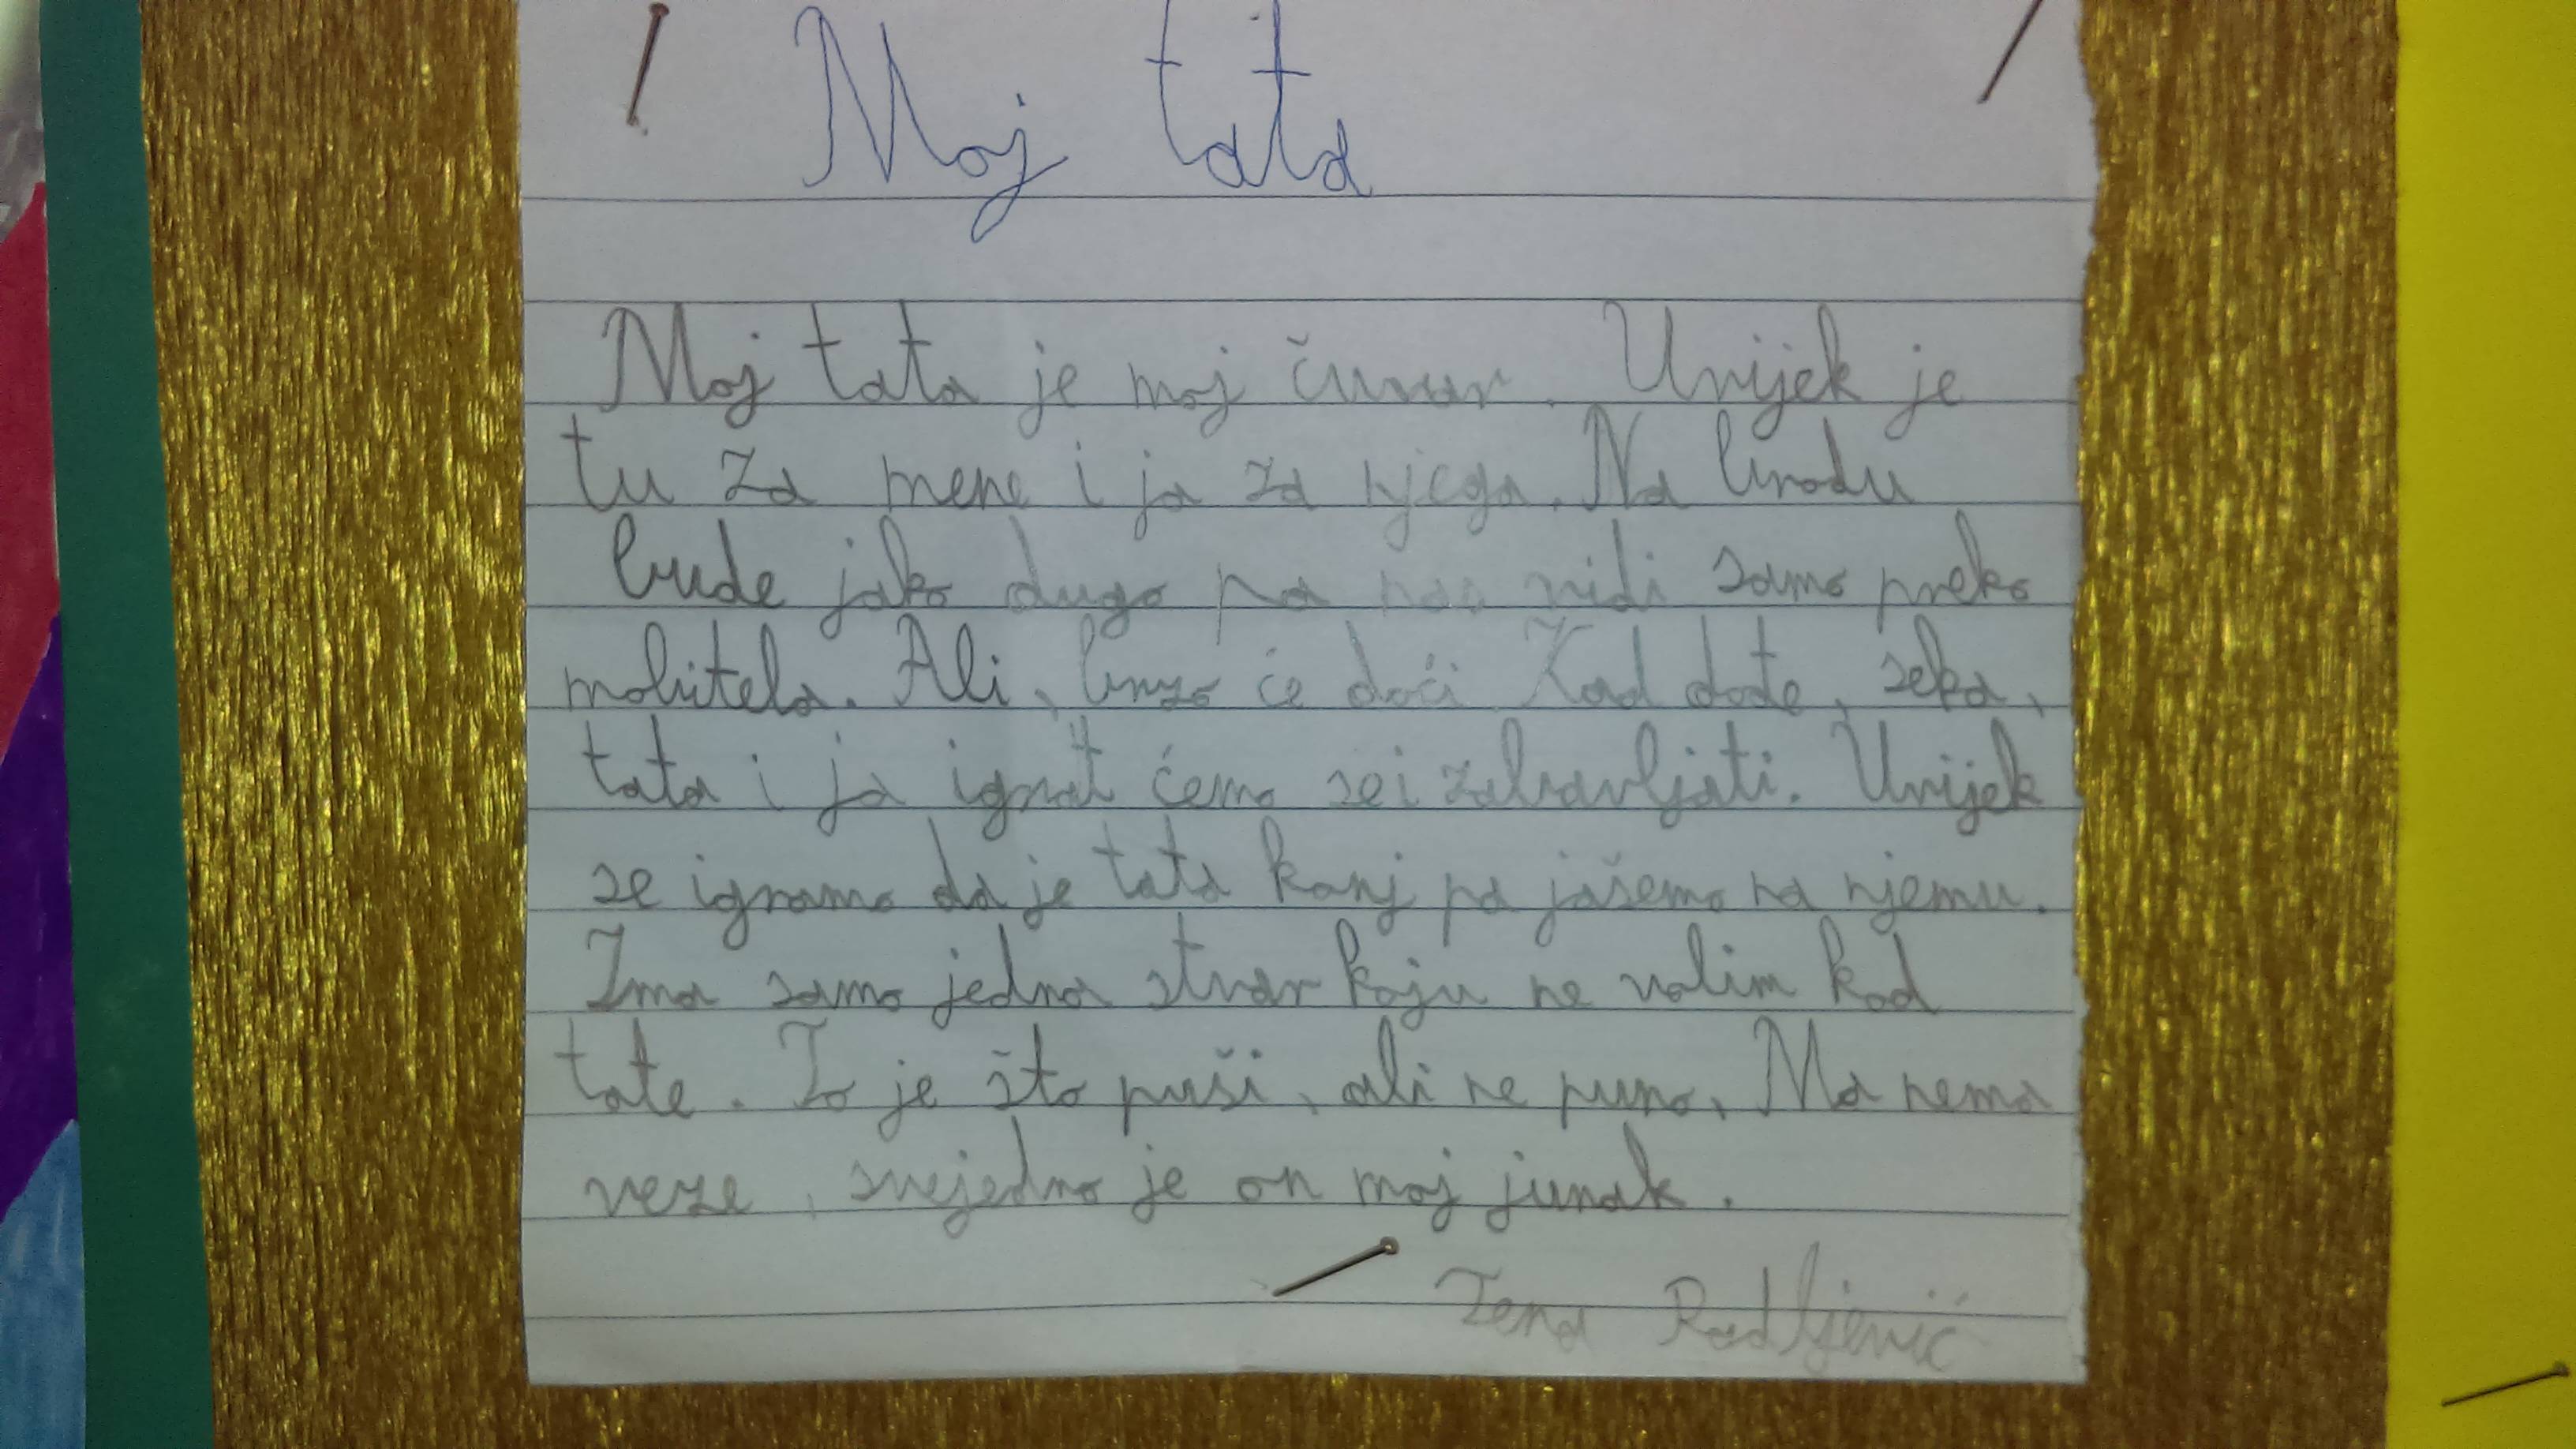 Moj tata
Moj tata je moj čuvar. Uvijek je
tu za mene i ja za njega. Na brodu
bude jako dugo pa nas vidi samo preko
mobitela. Ali, brzo će doći. Kad dođe, seka,
tata i ja igrat ćemo se i zabavljati. Uvijek
se igramo da je tata konj pa jašemo na njemu.
Ima samo jedna stvar koju ne volim kod
tate. To je što puši, ali ne puno. Ma nema
veze, svejedno je on moj junak.